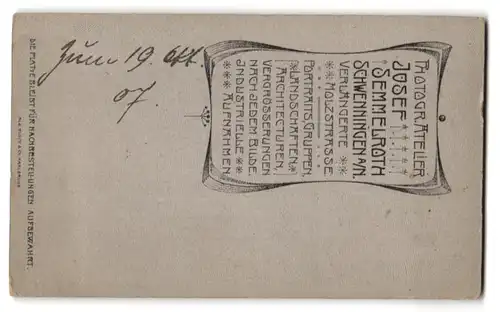 Zum 19. Okt.
07.
PHOTOGR. ATELIER
JOSEF
SEMMELROTH
SCHWENNINGEN A/N.
VERLÄNGERTE
MOLZSTRASSE
PORTRAITS, GRUPPEN,
LANDSCHAFTEN,
ARCHITECTUREN,
VERGRÖSSERUNGEN
NACH JEDEM BILDE.
INDUSTRIELLE
AUFNAHMEN
DIE PLATTE BLEIBT FÜR NACHBESTELLUNGEN AUFBEWAHRT.